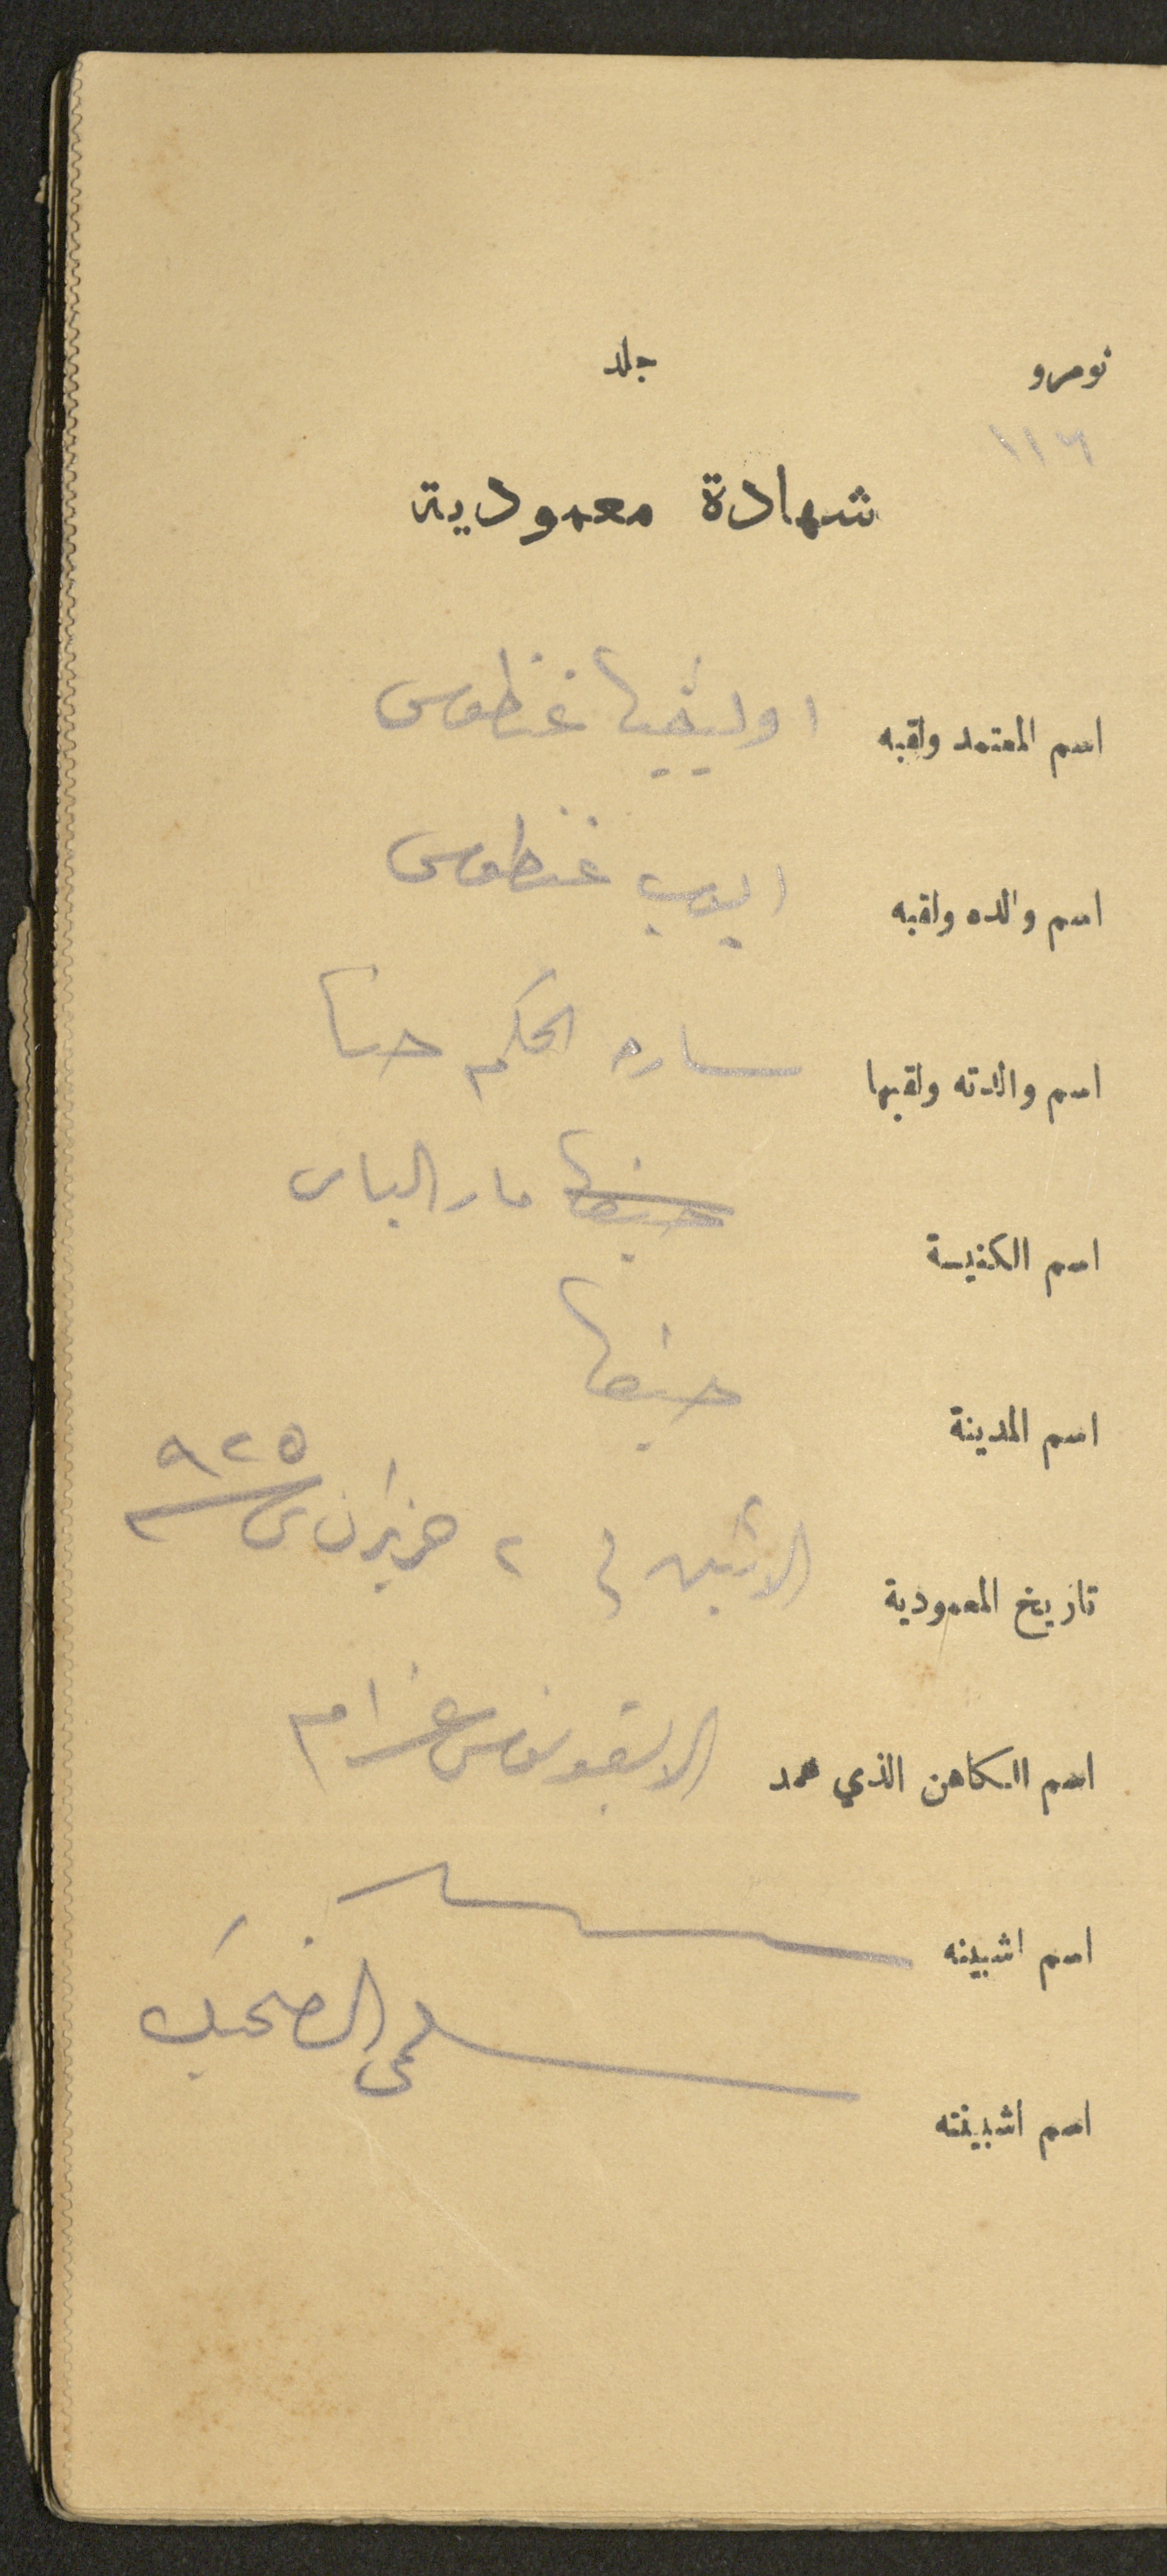 نومرو جلد
١١٦
شهادة معمودية
اسم المعتمد ولقبه اوليفيا غنطوس
اسم والده ولقبه اديب غنطوس
اسم والدته ولقبها ساره الحكيم حنا
اسم الكنيسة حيفا مار الياس
اسم المدينة حيفا
تاريخ المعمودية الاثنين في ٢ حزيران ٩٢٥
اسم الكاهن الذي عمد الايقونوس
اسم اشبينه
اسم اشبينته سلمى الضحيك